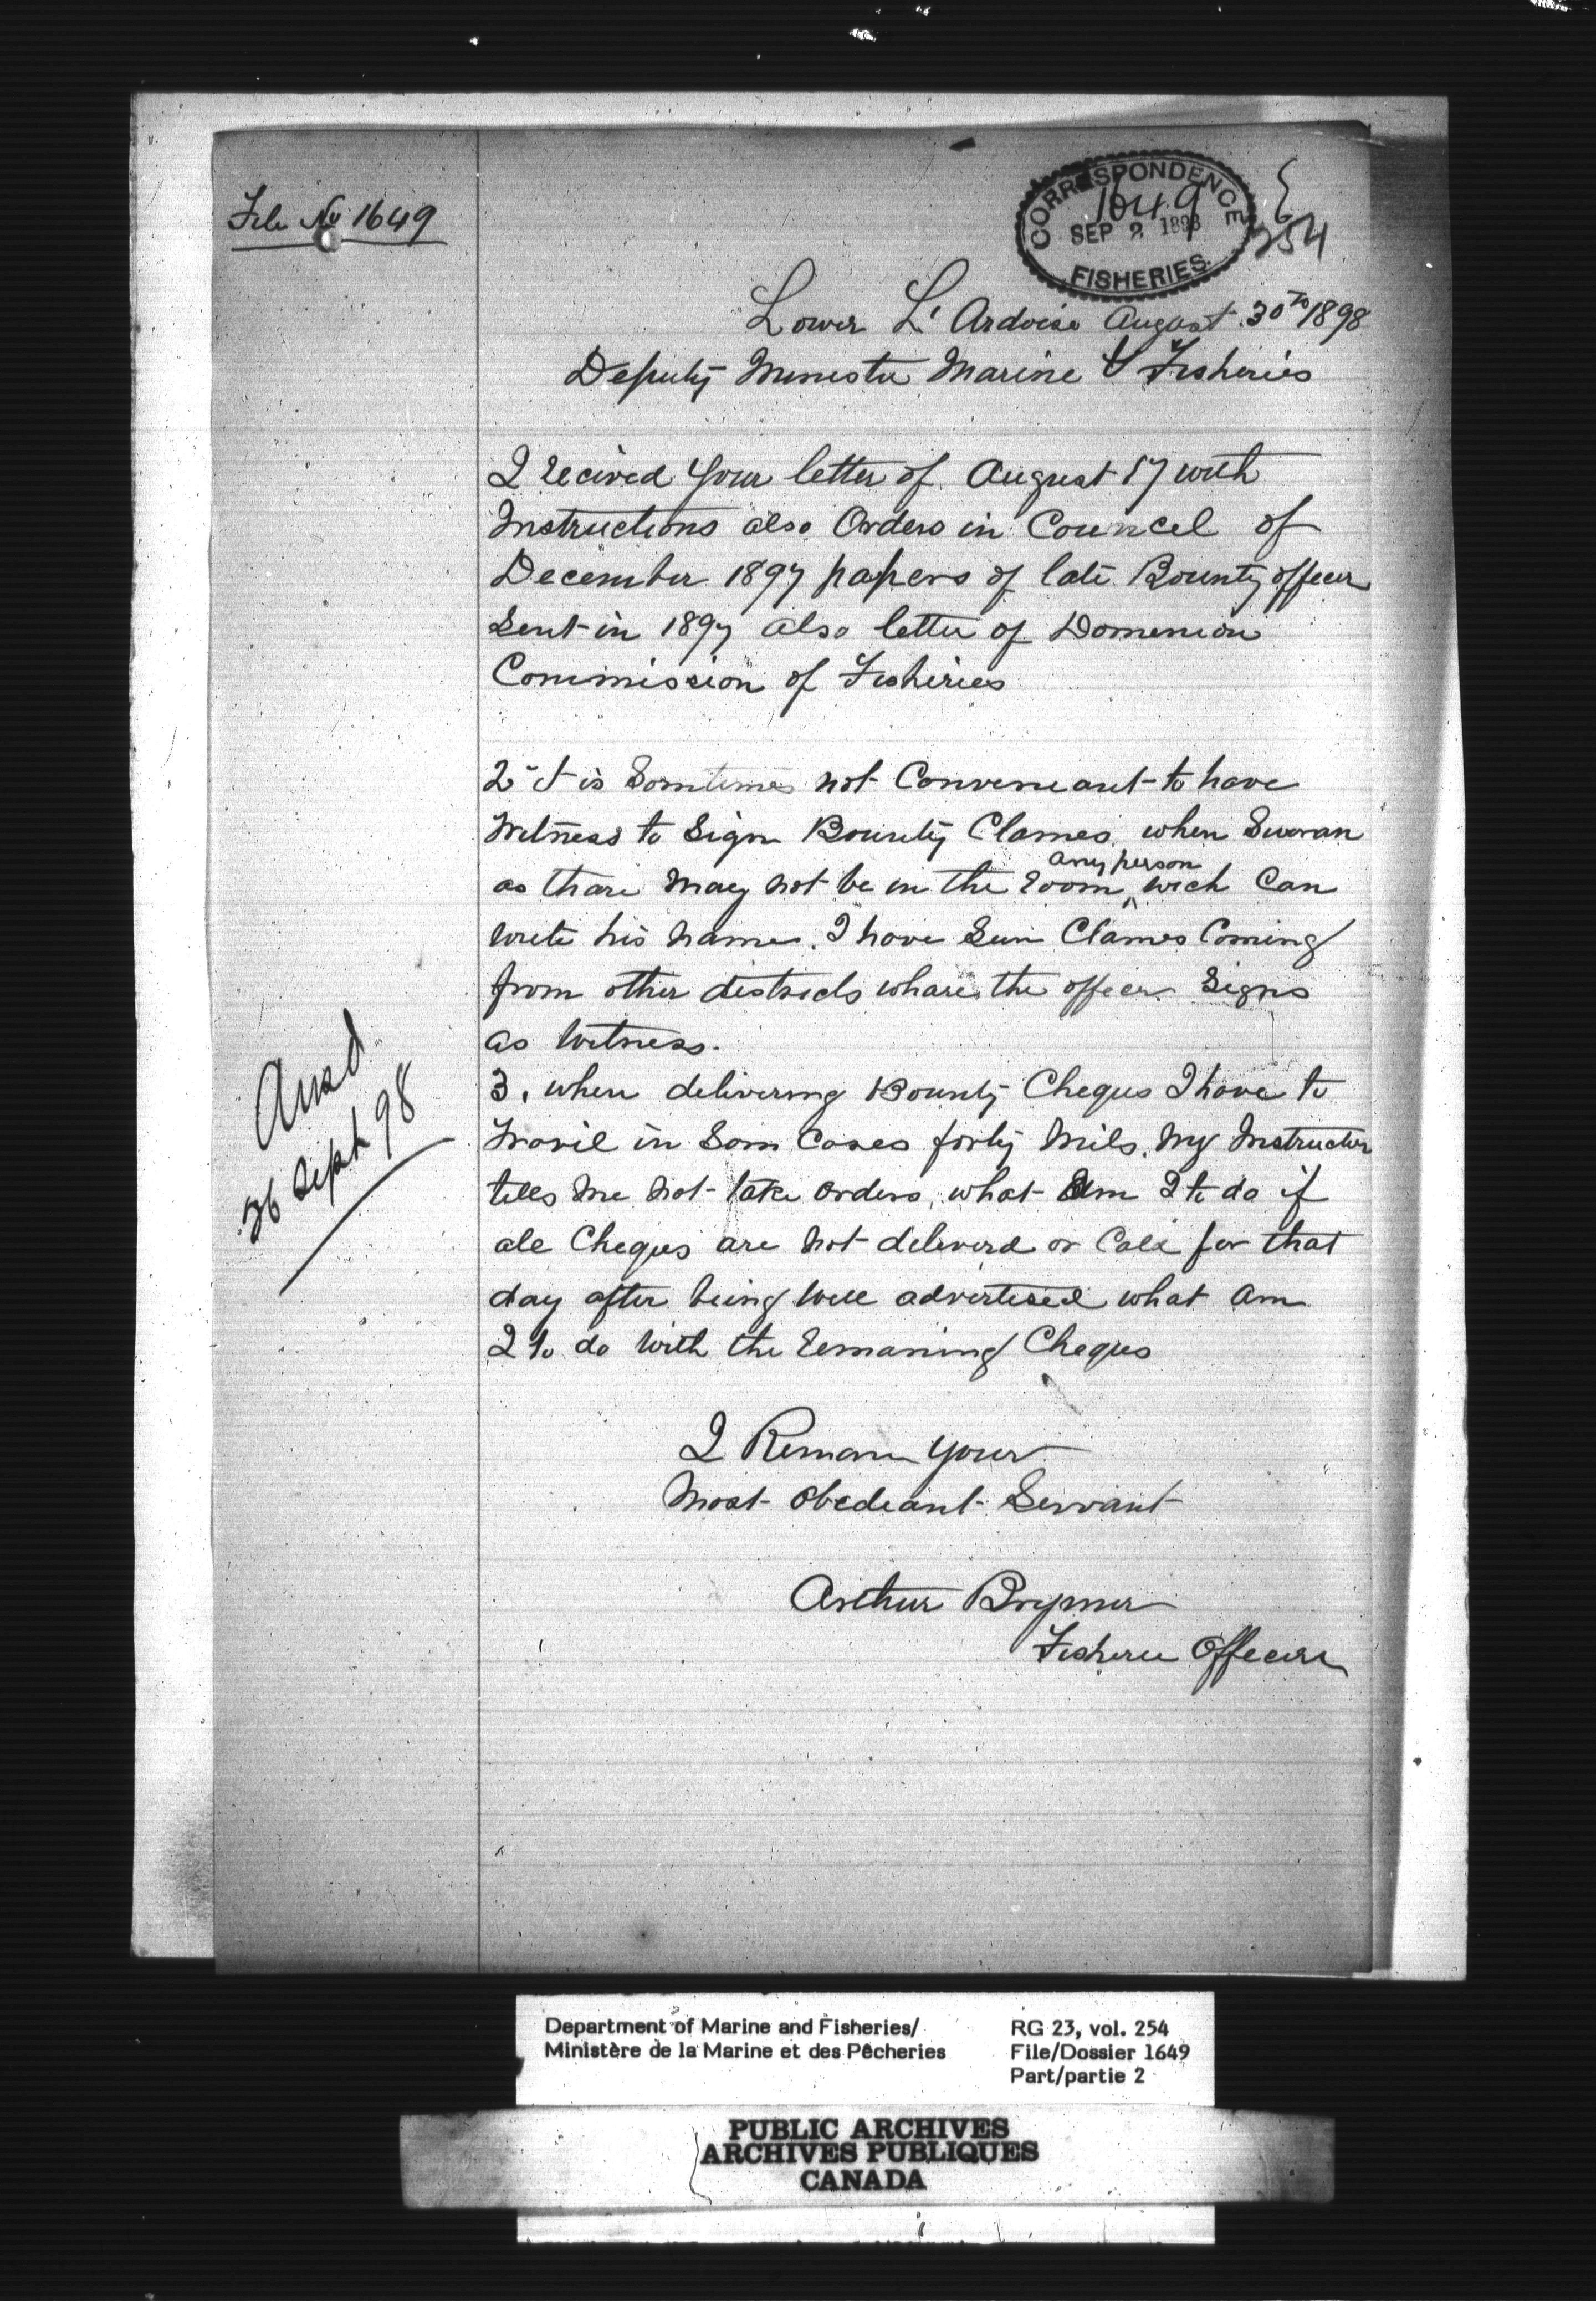 File No 1649
CORRESPONDENCE
1649
SEP 2 1898
FISHERIES
254
Lower L'Ardoise August 30th 1898
Deputy Minister Marine & Fisheries
I recived your letter of August 17 with
Instructions also Orders in Councel of
December 1897 papers of late Bounty officer
Sent in 1897 also letter of Domenion
Commission of Fisheries
2 It is Somtimes not Conveneant to have
Witness to Sign Bounty Clames when Sworan
as thare may not be in the room any person wich Can
write his name. I have Seen Clames Coming
from other districts whare the officer Signs
as Witness.
3. when delivering Bounty Cheques I have to
Travil in Som Cases forty Mils. My Instructor
tells me not take orders, what Am I to do if
all Cheques are not deliverd or Call for that
day after being well advertised what am
I to do with the remaning Cheques
I Remain your
Most Obedeant Servant
Arthur Brymer
Fisherie Officer
Ansd
26 Sept 98
Department of Marine and Fisheries/
Ministère de la Marine et des Pêcheries
RG 23, vol. 254
File/Dossier 1649
Part/partie 2
PUBLIC ARCHIVES
ARCHIVES PUBLIQUES
CANADA